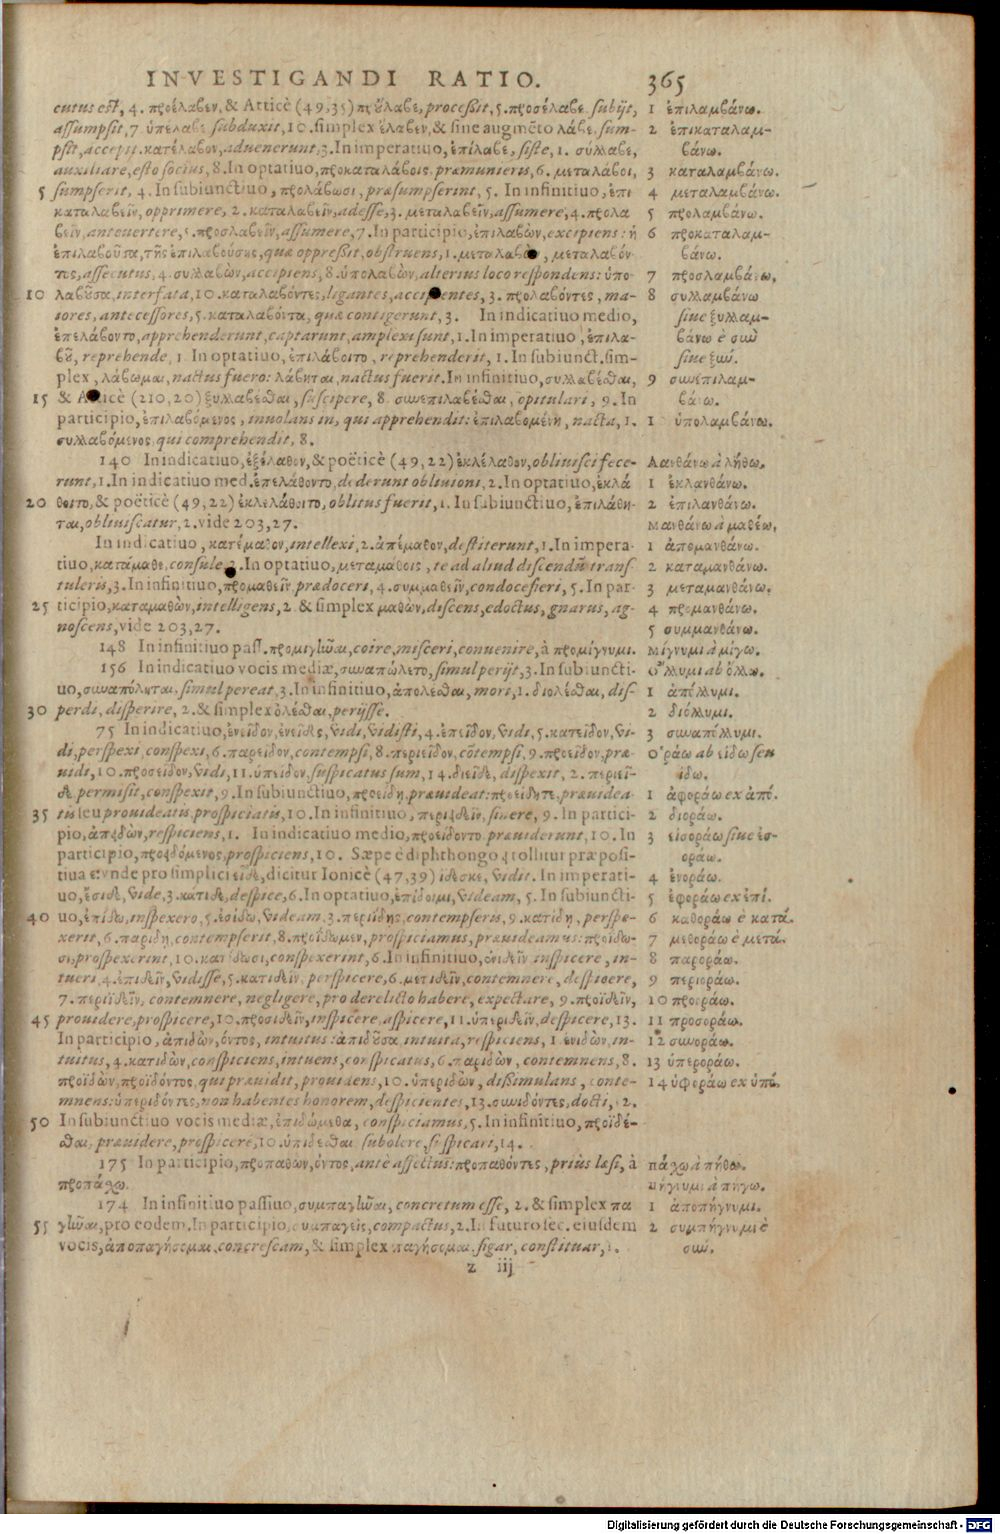 INVESTIGANDI RATIO. 365
cutus est, 4. προέλαβεν, & Atticè (49,35) προὔλαβε, processit, 5. προσέλαβε, subijt,
assumpsit, 7. ὑπέλαβε subduxit, 10. simplex ἔλαβεν, & sine augmẽto λάβε, sum-
psit, accepit. κατέλαβον, aduenerunt, 3. In imperatiuo, ἐπίλαβε, siste, 1. σύλλαβε,
auxiliare, esto socius, 8. In optatiuo, προκαταλάβοις præmunieris, 6. μεταλάβοι,
5 sumpserit, 4. In subiunctiuo, προλάβωσι, præsumpserint, 5. In infinitiuo, ἐπι
καταλαβεῖν, opprimere, 2. καταλαβεῖν, adesse, 3. μεταλαβεῖν, assumere, 4. προλα
βεῖν, anteuertere, 5. προσλαβεῖν, assumere, 7. In participio, ἐπιλαβὼν, excipiens: ἡ
ἐπιλαβοῦσα, τῆς ἐπιλαβούσης, quæ oppressit, obstruens, 1. μεταλαβὼν, μεταλαβόν
τες, assecutus, 4. συλλαβὼν, accipiens, 8. ὑπολαβὼν, alterius loco respondens: ὑπο-
10 λαβοῦσα, interfata, 10. καταλαβόντες, ligantes, accipientes, 3. προλαβόντες, ma-
iores, antecessores, 5. καταλαβόντα, quæ contigerunt, 3. In indicatiuo medio,
ἐπελάβοντο, apprehenderunt, captarunt, amplexi sunt, 1. In imperatiuo, ἐπιλα-
βοῦ, reprehende, 1. In optatiuo, ἐπιλάβοιτο, reprehenderit, 1. In subiunct. sim-
plex, λάβωμαι, nactus fuero: λάβηται, nactus fuerit. In infinitiuo, συλλαβέσθαι,
15 & Atticè (210,20) ξυλλαβέσθαι, suscipere, 8. συνεπιλαβέσθαι, opitulari, 9. In
participio, ἐπιλαβόμενος, inuolans in, qui apprehendit: ἐπιλαβομένη, nacta, 1.
συλλαβόμενος qui comprehendit, 8.
140 In indicatiuo, ἐξέλαθον, & poëticè (49,22) ἐκλέλαθον, obliuisci fece-
runt, 1. In indicatiuo med. ἐπελάθοντο, dederunt obliuioni, 2. In optatiuo, ἐκλά
20 θοιτο, & poëticè (49,22) ἐκλελάθοιτο, oblitus fuerit, 1. In subiunctiuo, ἐπιλάθη-
ται, obliuiscatur, 2. vide 203,27.
In indicatiuo, κατέμαθον, intellexi, 2. ἀπέμαθον, destiterunt, 1. In impera-
tiuo, κατάμαθε, consule, 2. In optatiuo, μεταμάθοις, te ad aliud discendũ trans
tuleris, 3. In infinitiuo, προμαθεῖν prædoceri, 4. συμμαθεῖν, condocefieri, 5. In par-
25 ticipio, καταμαθὼν, intelligens, 2. & simplex μαθὼν, discens, edoctus, gnarus, ag-
noscens, vide 203,27.
148 In infinitiuo pass. προμιγῆναι, coire, misceri, conuenire, à προμίγνυμι.
156 In indicatiuo vocis mediæ, συναπώλετο, simul perijt, 3. In subiuncti-
uo, συναπόληται, simul pereat, 3. In infinitiuo, ἀπολέσθαι, mori, 1. διολέσθαι, dis-
30 perdi, disperire, 2. & simplex ὀλέσθαι, perijsse.
75 In indicatiuo, ἐνεῖδον, ἐνεῖδες, vidi, vidisti, 4. ἐπεῖδον, vidi, 5. κατεῖδον, vi-
di, perspexi, conspexi, 6. παρεῖδον, contempsi, 8. περιεῖδον, cõtempsi, 9. προεῖδον, præ-
uidi, 10. προσεῖδον, vidi, 11. ὑπεῖδον, suspicatus sum, 14. διεῖδε, dispexit, 2. περιεῖ-
δε permisit, conspexit, 9. In subiunctiuo, προείδη, præuideat: προείδητε, præuidea-
35 tis seu prouideatis, prospiciatis, 10. In infinitiuo, περιειδεῖν, sinere, 9. In partici-
pio, ἀπειδὼν, respiciens, 1. In indicatiuo medio, προείδοντο præuiderunt, 10. In
participio, προειδόμενος, prospiciens, 10. Sæpe è diphthongo ει tollitur præposi-
tiua ε: vnde pro simplici εἶδε, dicitur Ionicè (47,39) ἴδεσκε, vidit. In imperati-
uo, ἔσιδε, vide, 3. κάτιδε, despice, 6. In optatiuo, ἐπίδοιμι, videam, 5. In subiuncti-
40 uo, ἐπίδω, inspexero, 5. ἐσίδω, videam, 3. περιίδης, contempseris, 9. κατίδη, perspe-
xerit, 6. παρίδη, contempserit, 8. προΐδωμεν, prospiciamus, præuideamus: προΐδω-
σι, prospexerint, 10. κατίδωσι, conspexerint, 6. In infinitiuo, ἐνιδεῖν inspicere, in-
tueri, 4. ἐπιδεῖν, vidisse, 5. κατιδεῖν, perspicere, 6. μετιδεῖν, contemnere, despicere,
7. περιϊδεῖν, contemnere, negligere, pro derelicto habere, expectare, 9. προϊδεῖν,
45 prouidere, prospicere, 10. προσιδεῖν, inspicere, aspicere, 11. ὑπεριδεῖν, despicere, 13.
In participio, ἀπιδὼν, όντος, intuitus: ἀπιδοῦσα, intuita, respiciens, 1. ἐνιδὼν, in-
tuitus, 4. κατιδὼν, conspiciens, intuens, conspicatus, 6. παριδὼν, contemnens, 8.
προϊδὼν, προϊδόντος, qui præuidit, prouidens, 10. ὑπεριδὼν, dissimulans, conte-
mnens: ὑπεριδόντες, non habentes honorem, despicientes, 13. συνιδόντες, docti, 12.
50 In subiunctiuo vocis mediæ, ἐπιδώμεθα, conspiciamus, 5. In infinitiuo, προϊδέ-
σθαι, præuidere, prospicere, 10. ὑπιδέσθαι subolere, suspicari, 14.
175 In participio, προπαθὼν, όντος, antè affectus: προπαθόντες, priùs læsi, à
προπάχω.
174 In infinitiuo passiuo, συμπαγῆναι, concretum esse, 2. & simplex πα
55 γῆναι, pro eodem. In participio, συμπαγεὶς, compactus, 2. In futuro sec. eiusdem
vocis, ἀποπαγήσομαι, concrescam, & simplex παγήσομαι, figar, constituar, 1.
z iij
1 ἐπιλαμβάνω.
2 ἐπικαταλαμ-
βάνω.
3 καταλαμβάνω.
4 μεταλαμβάνω.
5 προλαμβάνω.
6 προκαταλαμ-
βάνω.
7 προσλαμβάνω,
8 συλλαμβάνω
siue ξυλλαμ-
βάνω è σὺν
siue ξύν.
9 συνεπιλαμ-
βάνω.
1 ὑπολαμβάνω.
Λανθάνω à λήθω.
1 ἐκλανθάνω.
2 ἐπιλανθάνω.
Μανθάνω à μαθέω,
1 ἀπομανθάνω.
2 καταμανθάνω.
3 μεταμανθάνω.
4 προμανθάνω.
5 συμμανθάνω.
Μίγνυμι à μίγω.
Ὄλλυμι ab ὄλλω.
1 ἀπόλλυμι.
2 διόλλυμι.
3 συναπόλλυμι.
Ὁράω ab εἴδω seu
ἴδω.
1 ἀφοράω ex ἀπό.
2 διοράω.
3 εἰσοράω siue ἐσ-
οράω.
4 ἐνοράω.
5 ἐφοράω ex ἐπί.
6 καθοράω è κατά.
7 μεθοράω è μετά.
8 παροράω.
9 περιοράω.
10 προοράω.
11 προσοράω.
12 συνοράω.
13 ὑπεροράω.
14 ὑφοράω ex ὑπό.
πάχω à πήθω.
πήγνυμι à πήγω.
1 ἀποπήγνυμι.
2 συμπήγνυμι è
σύν.
Digitalisierung gefördert durch die Deutsche Forschungsgemeinschaft - DFG